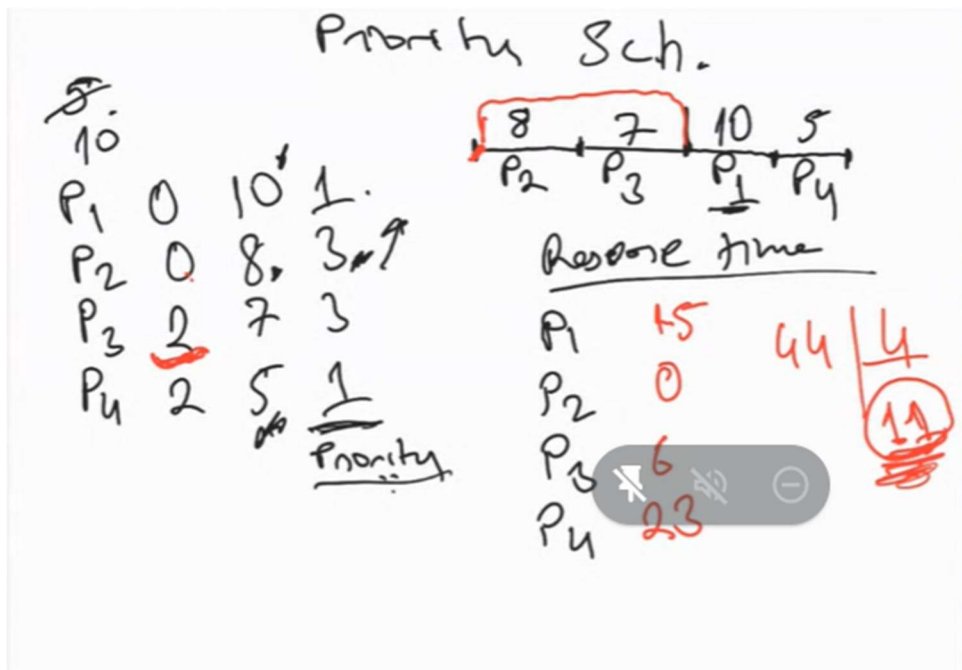 Priority Sch.
5.
10
P1 0 10 1.
P2 0 8. 3
P3 2 7 3
P4 2 5 1
Priority
8 7 10 5
P2 P3 P1 P4
Response time
P1 15
P2 0
P3 6
P4 23
44 4
11